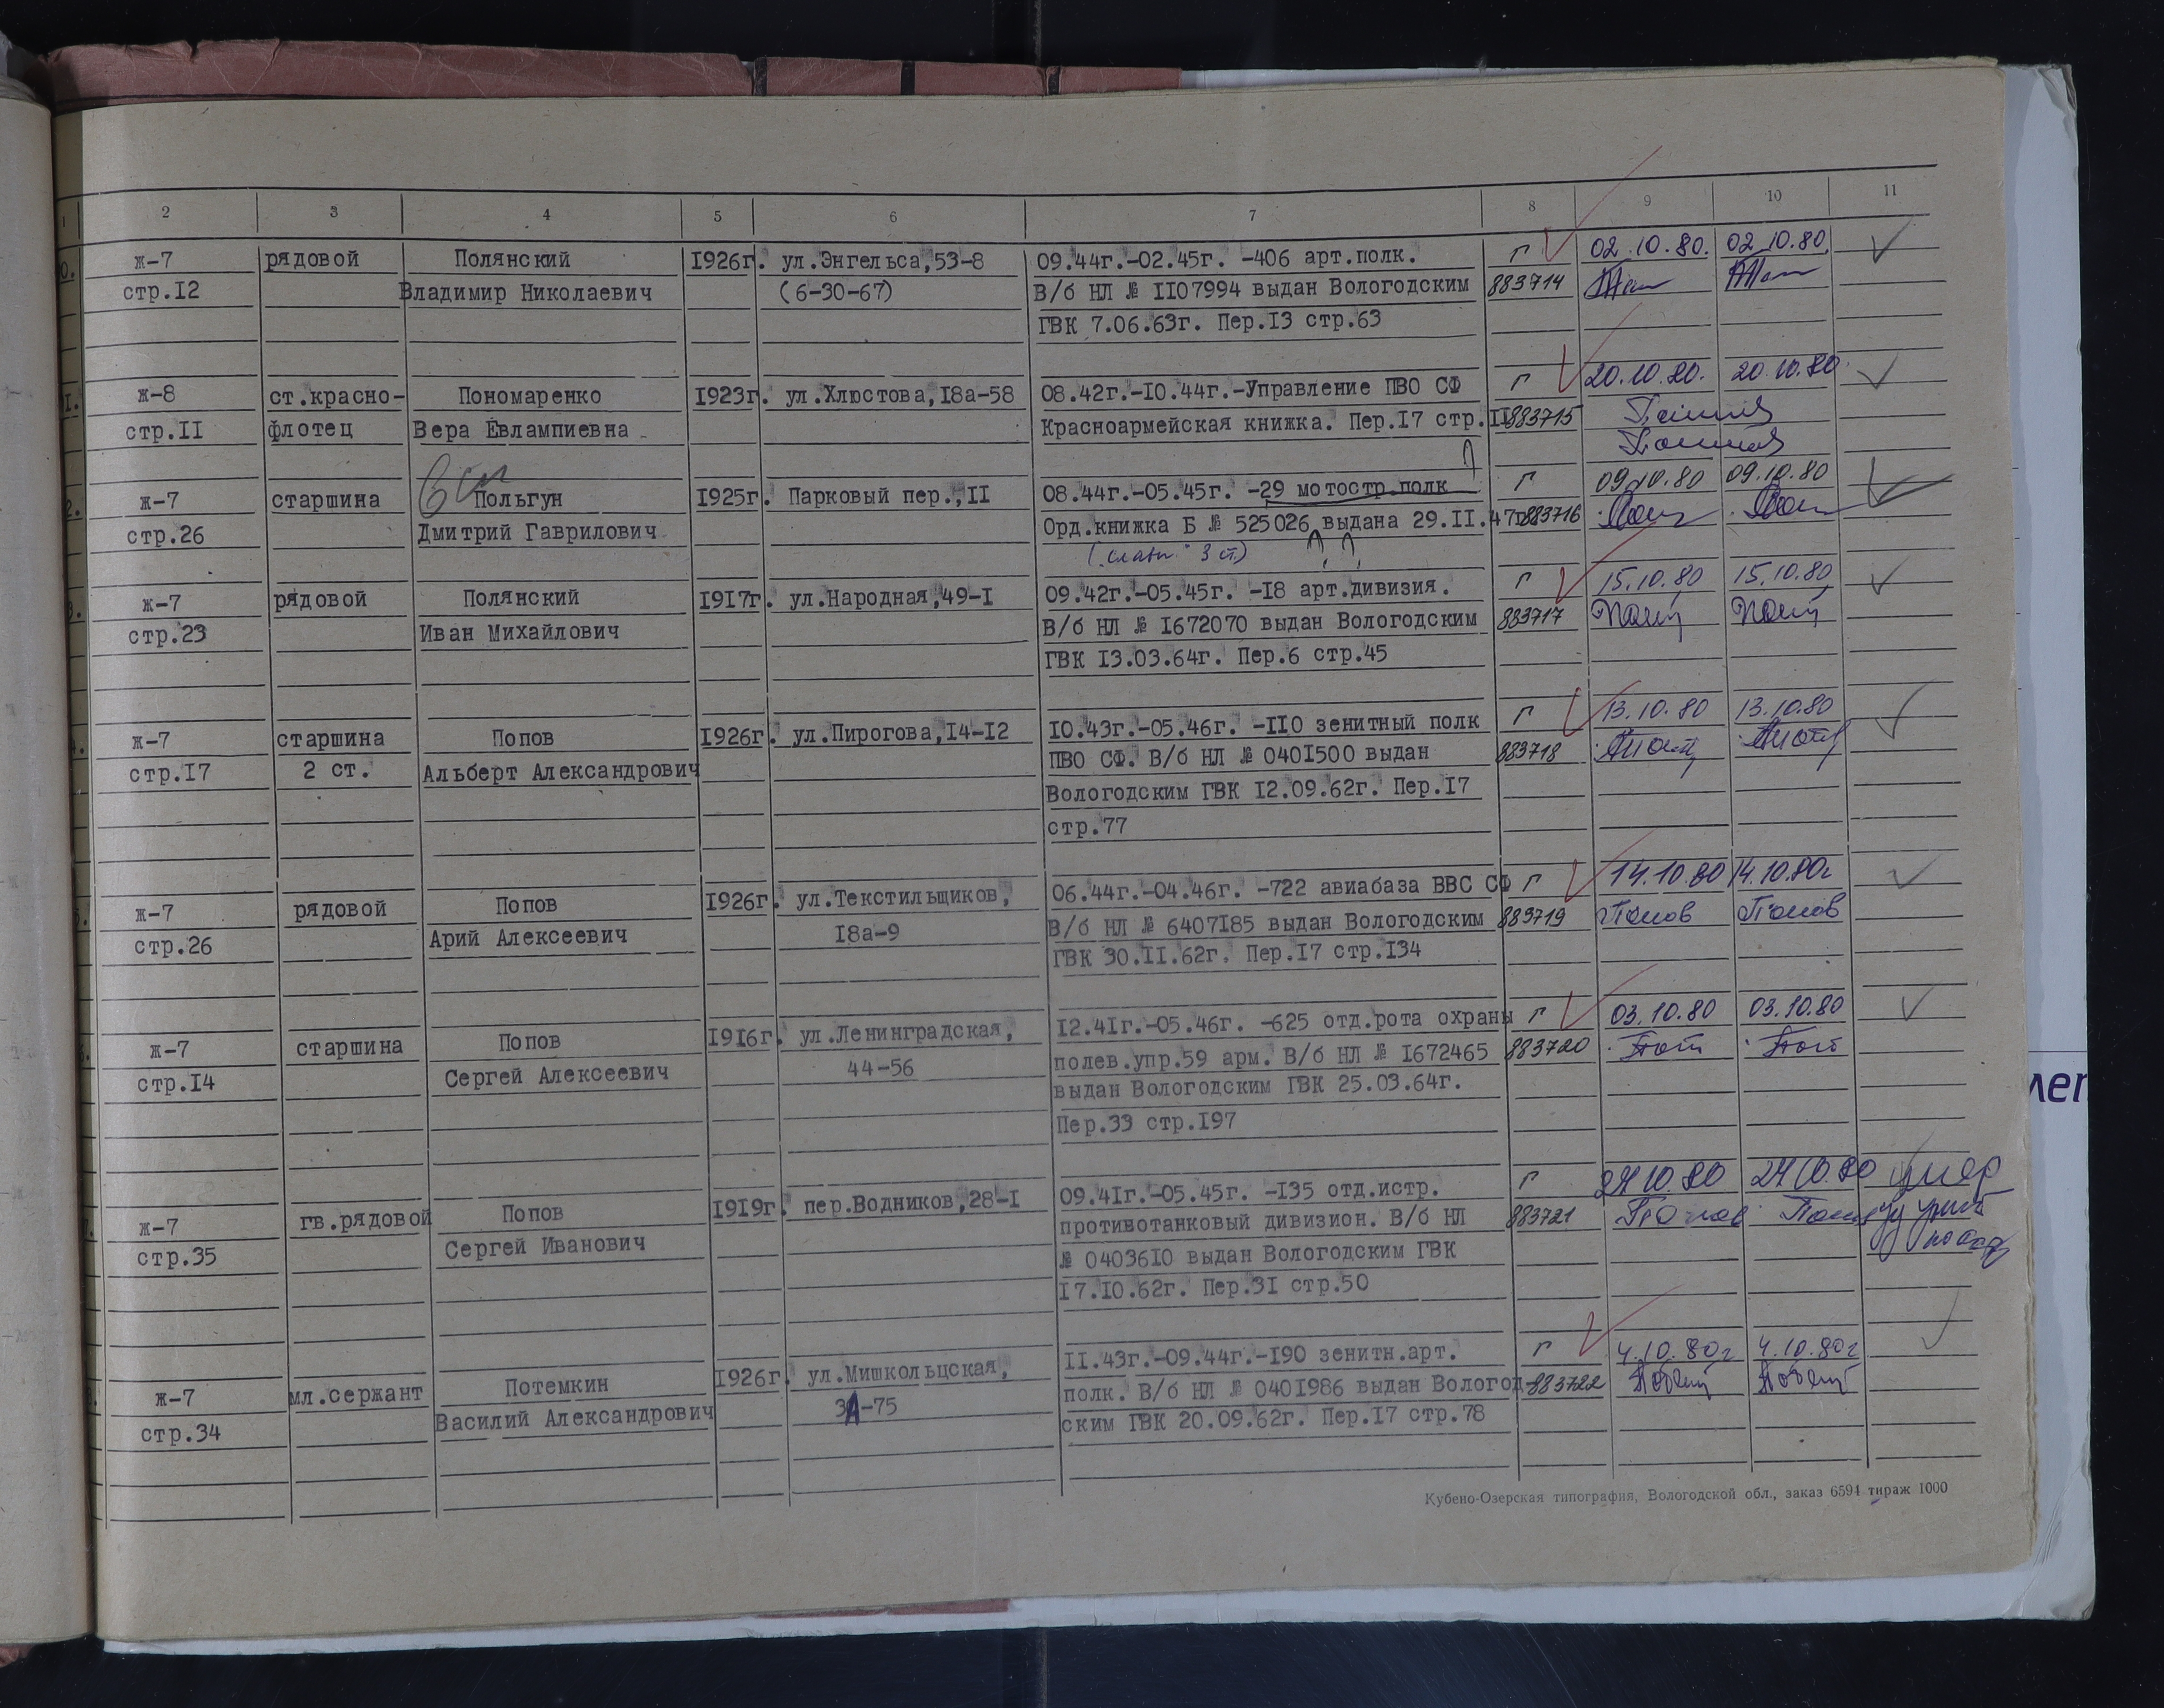 1 2 3 4 5 6 7 8 9 10 11
0. ж-7 рядовой Полянский 1926г. ул.Энгельса,53-8 09.44г.-02.45г. -406 арт.полк. г 02.10.80. 02.10.80.
стр.I2 Владимир Николаевич (6-30-67) В/б НЛ № II07994 выдан Вологодским 883714
ГВК 7.06.63г. Пер.I3 стр.63
1. ж-8 ст.красно- Пономаренко 1923г. ул.Хлюстова,I8а-58 08.42г.-I0.44г.-Управление ПВО СФ г 20.10.80. 20.10.80.
стр.II флотец Вера Евлампиевна Красноармейская книжка. Пер.I7 стр.II 883715
2. ж-7 старшина Польгун 1925г. Парковый пер.,II 08.44г.-05.45г. -29 мотостр.полк г 09.10.80 09.10.80
стр.26 Дмитрий Гаврилович Орд.книжка Б № 525026 выдана 29.II.47г 883716
3 ст.)
3. ж-7 рядовой Полянский I9I7г. ул.Народная,49-I 09.42г.-05.45г. -I8 арт.дивизия. г 15.10.80 15.10.80
стр.23 Иван Михайлович В/б НЛ № I672070 выдан Вологодским 883717
ГВК I3.03.64г. Пер.6 стр.45
4. ж-7 старшина Попов I926г. ул.Пирогова,I4-I2 I0.43г.-05.46г. -II0 зенитный полк г 13.10.80 13.10.80
стр.I7 2 ст. Альберт Александрович ПВО СФ. В/б НЛ № 040I500 выдан 883718
Вологодским ГВК I2.09.62г. Пер.I7
стр.77
5. ж-7 рядовой Попов I926г. ул.Текстильщиков, 06.44г.-04.46г. -722 авиабаза ВВС СФ г 14.10.80 14.10.80г
стр.26 Арий Алексеевич I8а-9 В/б НЛ № 6407I85 выдан Вологодским 883719 Попов Попов
ГВК 30.II.62г. Пер.I7 стр.I34
6. ж-7 старшина Попов I9I6г. ул.Ленинградская, I2.4Iг.-05.46г. -625 отд.рота охраны г 03.10.80 03.10.80
стр.I4 Сергей Алексеевич 44-56 полев.упр.59 арм. В/б НЛ № I672465 883720
выдан Вологодским ГВК 25.03.64г.
Пер.33 стр.I97
7. ж-7 гв.рядовой Попов I9I9г. пер.Водников,28-I 09.4Iг.-05.45г. -I35 отд.истр. г 24.10.80 24.10.80 умер
стр.35 Сергей Иванович противотанковый дивизион. В/б НЛ 883721 Попов
№ 04036I0 выдан Вологодским ГВК
I7.I0.62г. Пер.3I стр.50
8. ж-7 мл.сержант Потемкин I926г. ул.Мишкольцская, II.43г.-09.44г.-I90 зенитн.арт. г 4.10.80г 4.10.80г
стр.34 Василий Александрович -75 полк. В/б НЛ № 040I986 выдан Вологод- 883722
ским ГВК 20.09.62г. Пер.I7 стр.78
Кубено-Озерская типография, Вологодской обл., заказ 6594 тираж 1000